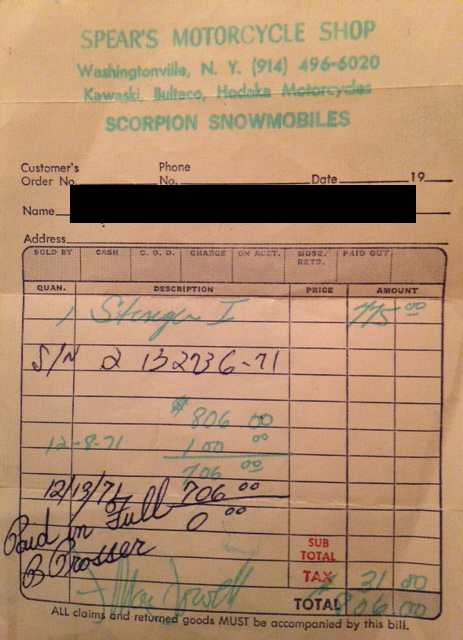 SPEAR'S MOTORCYCLE SHOP
Washingtonville, N. Y. (914) 496-6020
Kawaski, Bulteco, Hodaka Motorcycles
SCORPION SNOWMOBILES
Customer's Order No. Phone No. Date 19
Name
Address
SOLD BY CASH C. O. D. CHARGE ON ACCT. MDSE. RETD. PAID OUT
QUAN. DESCRIPTION PRICE AMOUNT
1 Stinger I 775 00
S/N 2 132736-71
$ 806 00
12-8-71 100 00
706 00
12/19/71 706 00
Paid in Full 0 00
B Prosser
SUB TOTAL
TAX 31 00
TOTAL 806.00
ALL claims and returned goods MUST be accompanied by this bill.